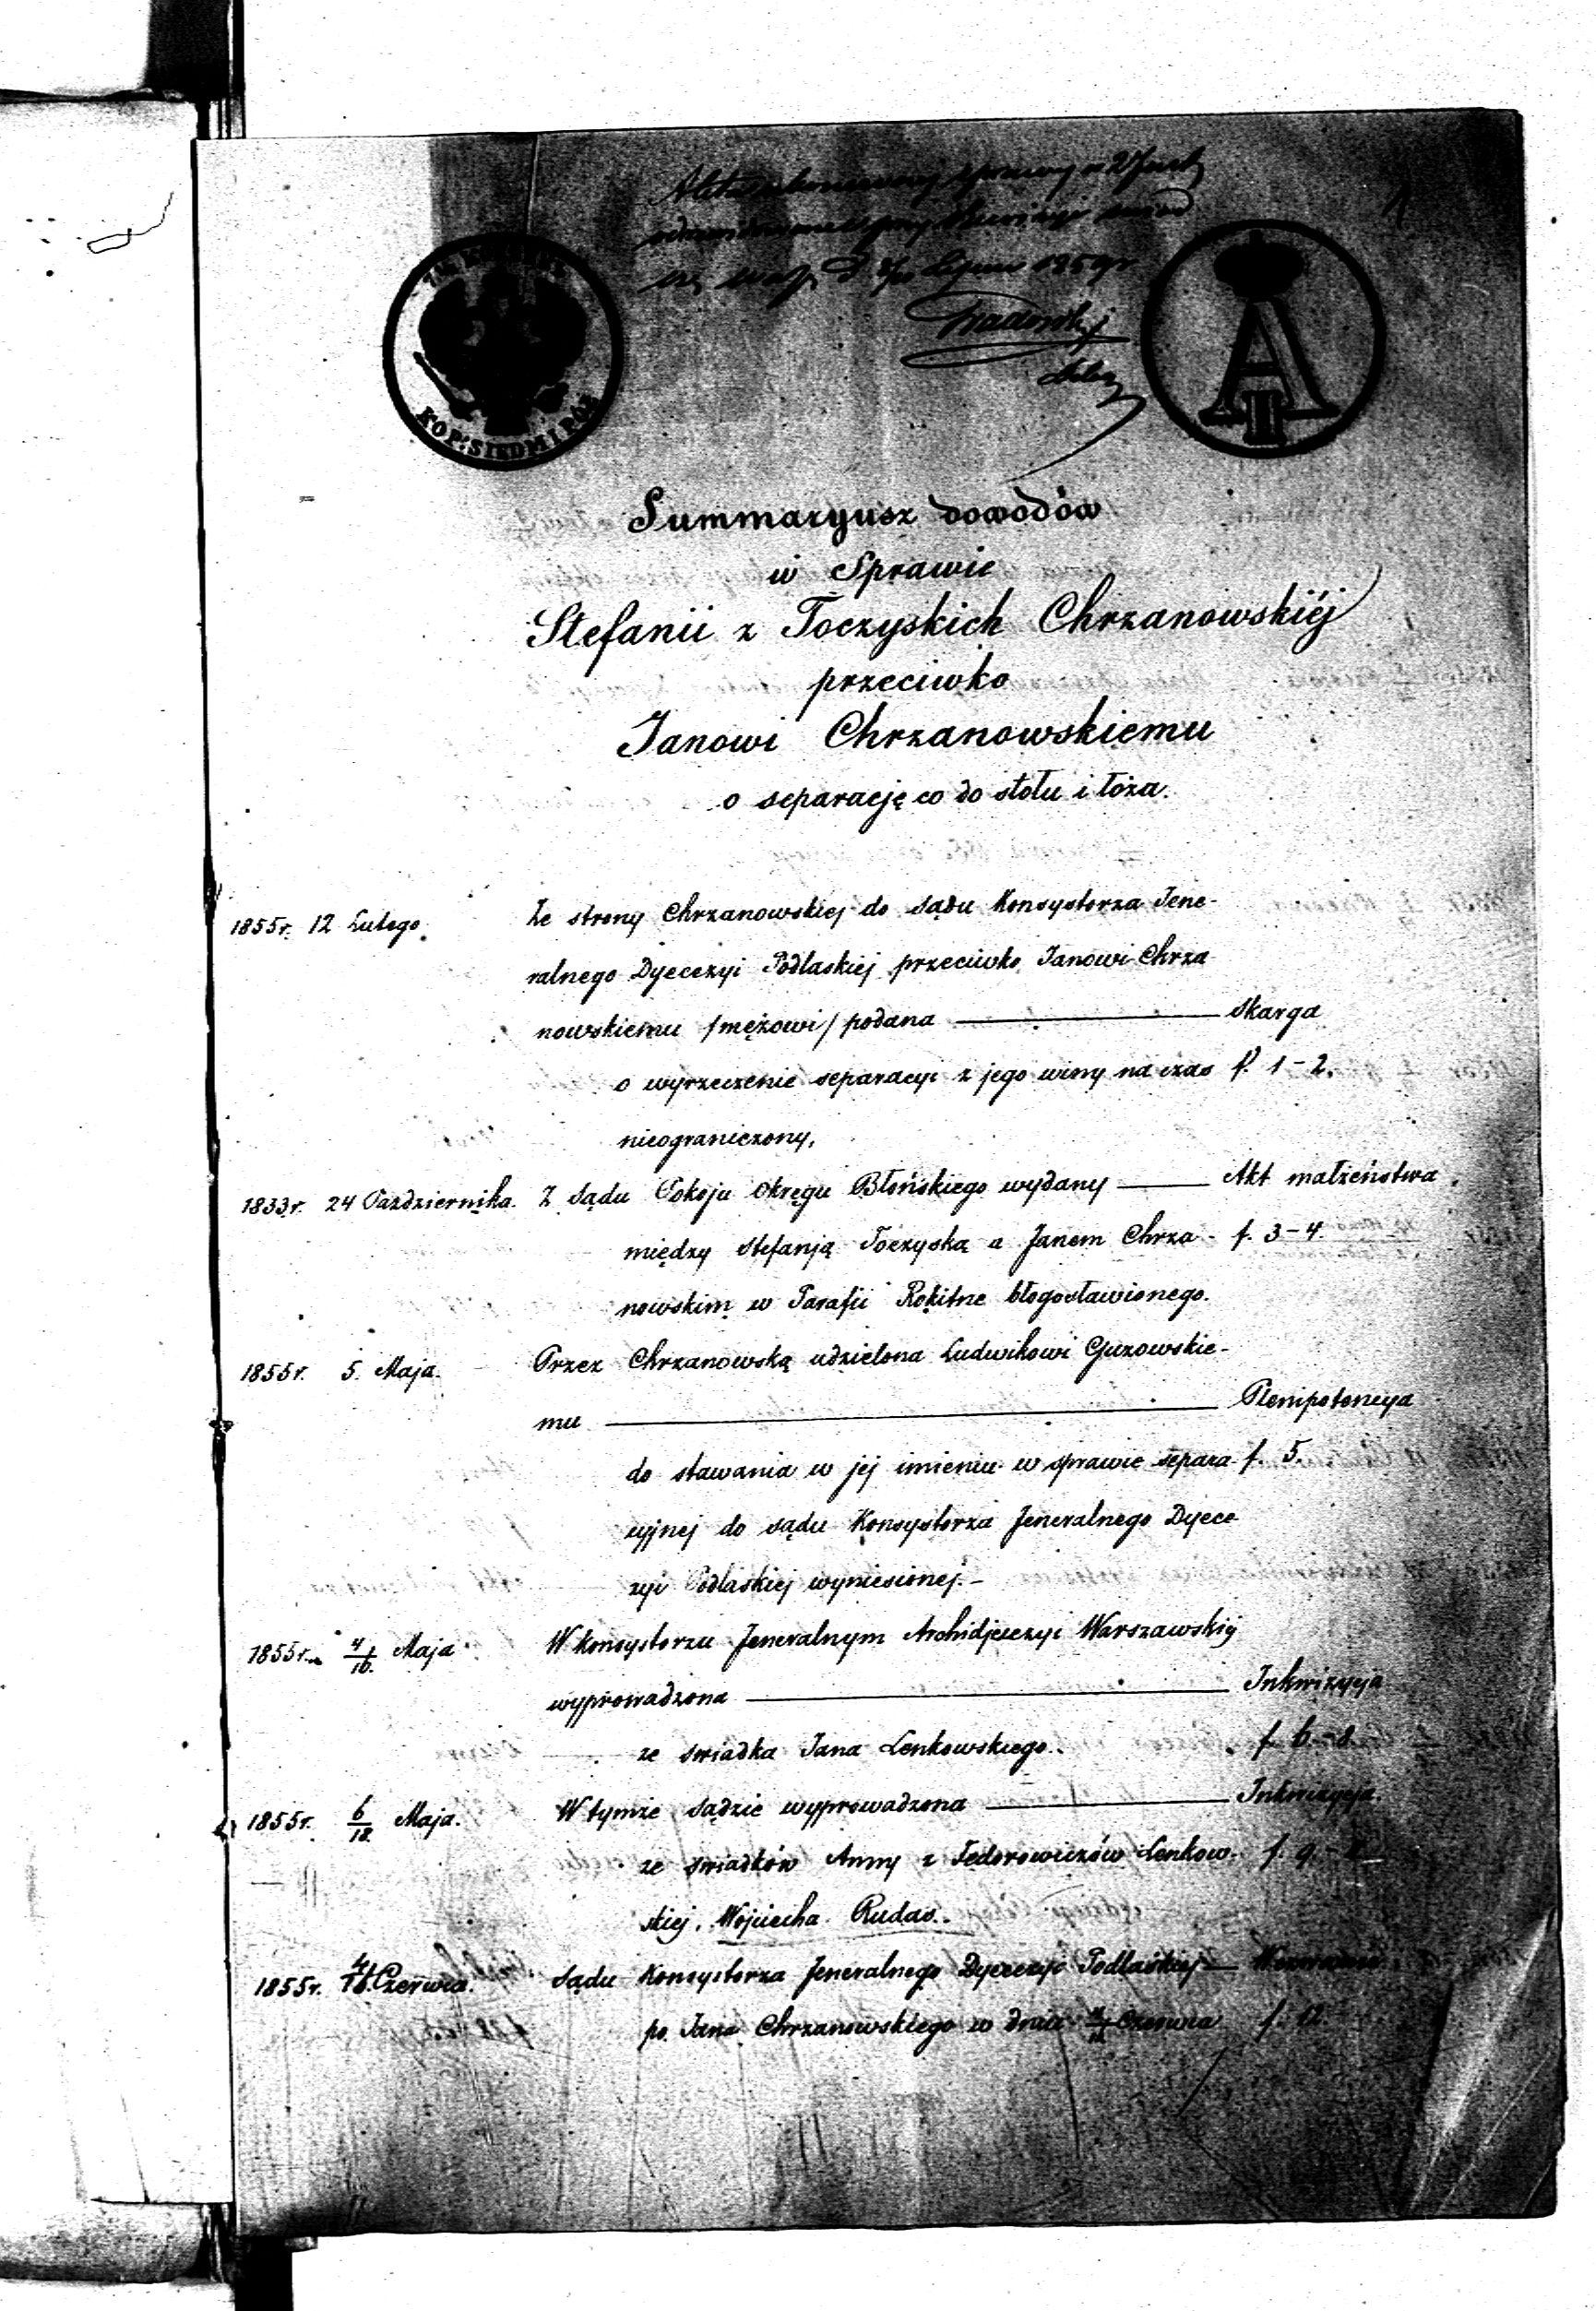 1
KOP: SIEDM I PÓŁ
A II
1859 r
Summaryusz dowodów
w Sprawie
Stefanii z Toczyskich Chrzanowskiéj
przeciwko
Janowi Chrzanowskiemu
o separację co do stołu i łoża.
1855 r. 12 Lutego. Ze strony Chrzanowskiej do Sądu Konsystorza Jene-
ralnego Dyecezyi Podlaskiej przeciwko Janowi Chrza
nowskiemu /mężowi/ podana ——— Skarga
o wyrzeczenie separacyi z jego winy na czas f. 1-2.
nieograniczony.
1833 r. 24 Października. Z Sądu Pokoju Okręgu Błońskiego wydany ——— Akt małżeństwa
między Stefanją Toczyską a Janem Chrza- f. 3-4.
nowskim w Parafii Rokitne błogosławionego.
1855 r. 5. Maja. Przez Chrzanowską udzielona Ludwikowi Guzowskie-
mu ——— Plenipotencya
do stawania w jej imieniu w sprawie separa- f. 5.
cyjnej do Sądu Konsystorza Jeneralnego Dyece
zyi Podlaskiej wyniesionej.-
1855 r. 4/16. Maja W Konsystorzu Jeneralnym Archidjecezyi Warszawskiej
wyprowadzona ——— Inkwizycya
ze świadka Jana Lenkowskiego. f. 6-8
1855 r. 6/18. Maja. W tymże Sądzie wyprowadzona ——— Inkwizycja.
ze świadków Anny z Fedorowiczów Lenkow- f. 9.-
skiej, Wojciecha Rudas.
1855 r. 4/16. Czerwca. Sądu Konsystorza Jeneralnego Dyecezyi Podlaskiej — Wezwanie
po Jana Chrzanowskiego w dniu Czerwca f. 12